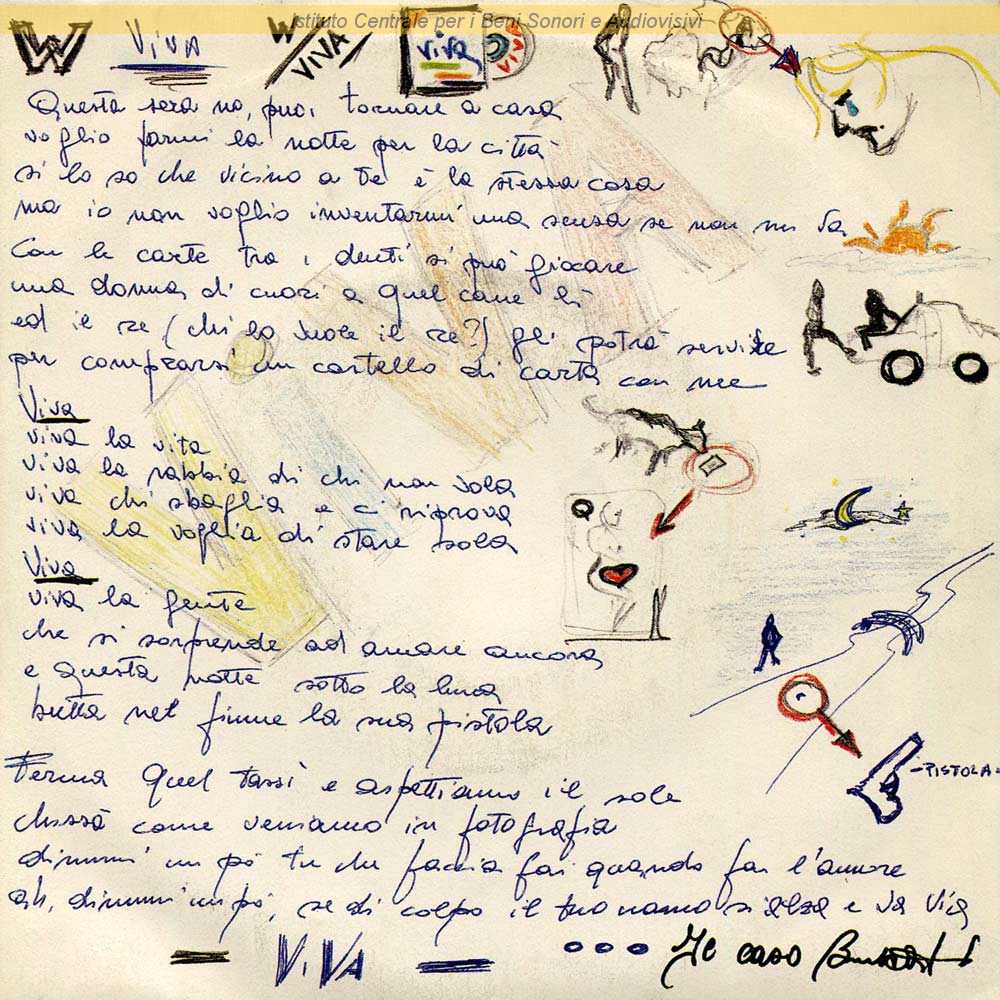 Istituto Centrale per i Beni Sonori e Audiovisivi
W VIVA W/VIVA viva VIVA
Questa sera no, puoi tornare a casa
voglio farmi la notte per la città
si lo so che vicino a te è la stessa cosa
ma io non voglio inventarmi una scusa se non mi va
Con le carte tra i denti si può giocare
una donna di cuori a quel cane lì
ed il re (chi lo vuole il re?) gli potrà servire
per comprarsi un castello di carta con me
Viva
viva la vita
viva la rabbia di chi non vola
viva chi sbaglia e ci riprova
viva la voglia di stare sola
Q
Viva
viva la gente
che si sorprende ad amare ancora
e questa notte sotto la luna
butta nel fiume la sua pistola
Ferma quel tassì e aspettiamo il sole
-PISTOLA-
chissà come veniamo in fotografia
dimmi un pò tu che faccia fai quando fai l'amore
ah, dimmi un pò, se di colpo il tuo naso si alza e va via
= VIVA = ooo Il caso